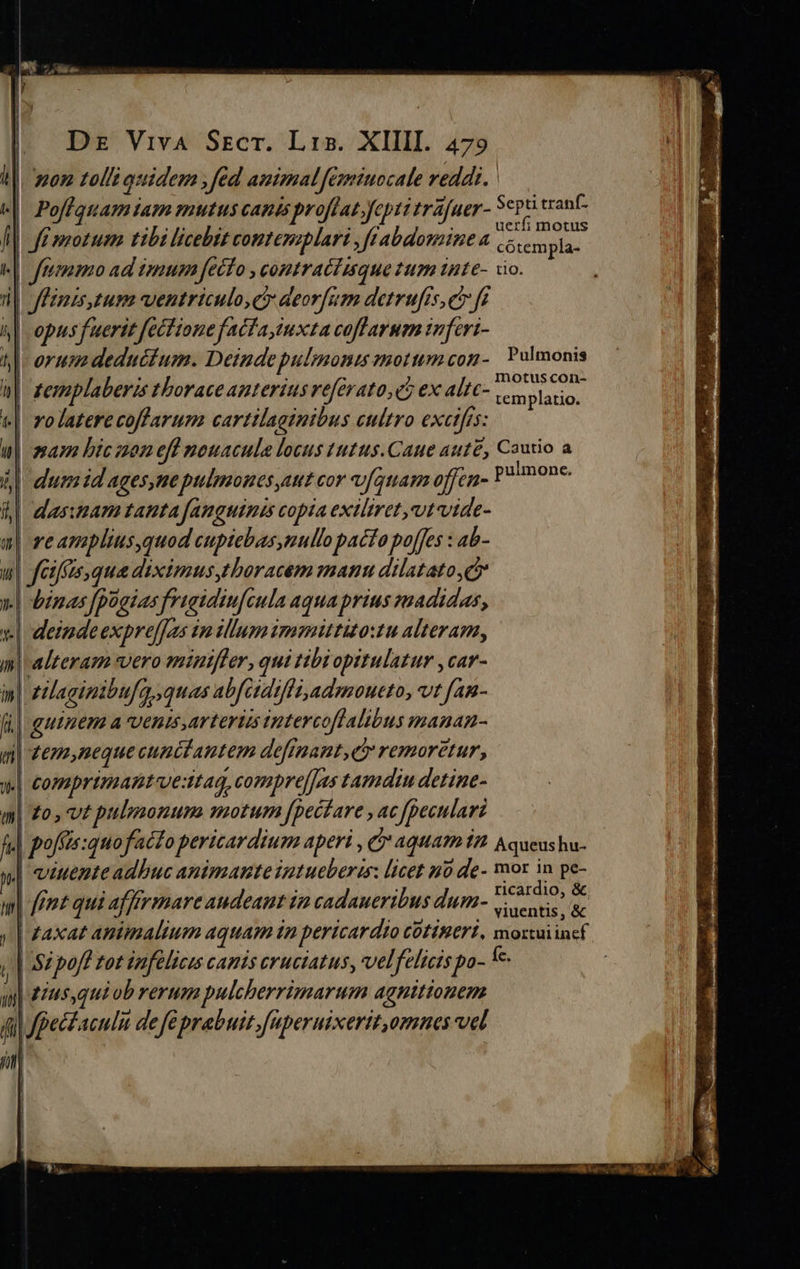 De Viva Sect. Lib. XIIII. 479
non tolli quidem, sed animal semiuocale reddi.
Postquam iam mutus canis prostat, septi trāsuer-
si motum tibi licebit contemplari, si abdomine a
summo ad imum secto, contractisque tum inte-
stinis, tum ventriculo, & deorsum detrusis, & si
opus fuerit sectione facta, iuxta costarum inferi-
orum deductum. Deinde pulmonis motum con-
templaberis thorace anterius reserato, & ex alte-
ro latere costarum cartilaginibus cultro excisis:
nam hic non est nouacula locus tutus. Caue autē,
dum id ages, ne pulmones, aut cor vsquam offen-
das: nam tanta sanguinis copia exiliret, vt vide-
re amplius, quod cupiebas, nullo pacto posses: ab-
scissis, qua diximus, thoracem manu dilatato, &
binas spōgias frigidiuscula aqua prius madidas,
deinde expressas in illum immittito: tu alteram,
alteram vero minister, qui tibi opitulatur, car-
tilaginibusq, quas abscidisti, admoueto, vt san-
guinem a venis, arteriis intercostalibus manan-
tem, neque cunctantem desinant, & remorētur,
comprimant ve: itaq, compressas tamdiu detine-
to, vt pulmonum motum spectare, ac speculari
possis: quo facto pericardium aperi, & aquam in
viuente adhuc animante intueberis: licet nō de-
sint qui affirmare audeant in cadaueribus dum-
taxat animalium aquam in pericardio cōtineri.
Si post tot infelicis canis cruciatus, vel felicis po-
tius, qui ob rerum pulcherrimarum agnitionem
spectaculū de se præbuit, superuixerit, omnes vel
Septi transf-
uersi motus
cōtempla-
tio.
Pulmonis
motus con-
templatio.
Cautio a
pulmone.
Aqueus hu-
mor in pe-
ricardio, &
viuentis, &
mortui inef
se.